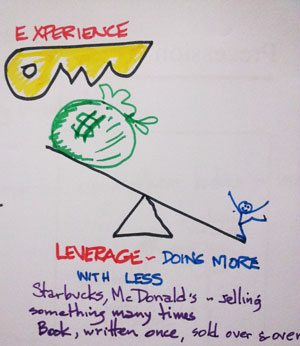 EXPERIENCE
LEVERAGE ~ DOING MORE
WITH LESS
Starbucks, McDonald's ~ selling
something many times
Book, written once, sold over & over